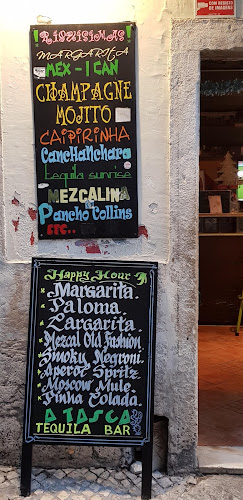 ¡RIQUISIMAS!
MARGARITA
MEX-I CAN
CHAMPAGNE
MOJITO
CAIPIRINHA
CanCHanChara
tequila sunrise
MEZCALINA
Pancho Collins
etc..
Happy Hour
Margarita.
Paloma.
Zargarita.
Mezcal Old Fashion.
Smoky Negroni.
Aperol Spritz.
Moscow Mule.
Pinha Colada.
A TASCA
TEQUILA BAR
COM REGISTO
DE IMAGENS